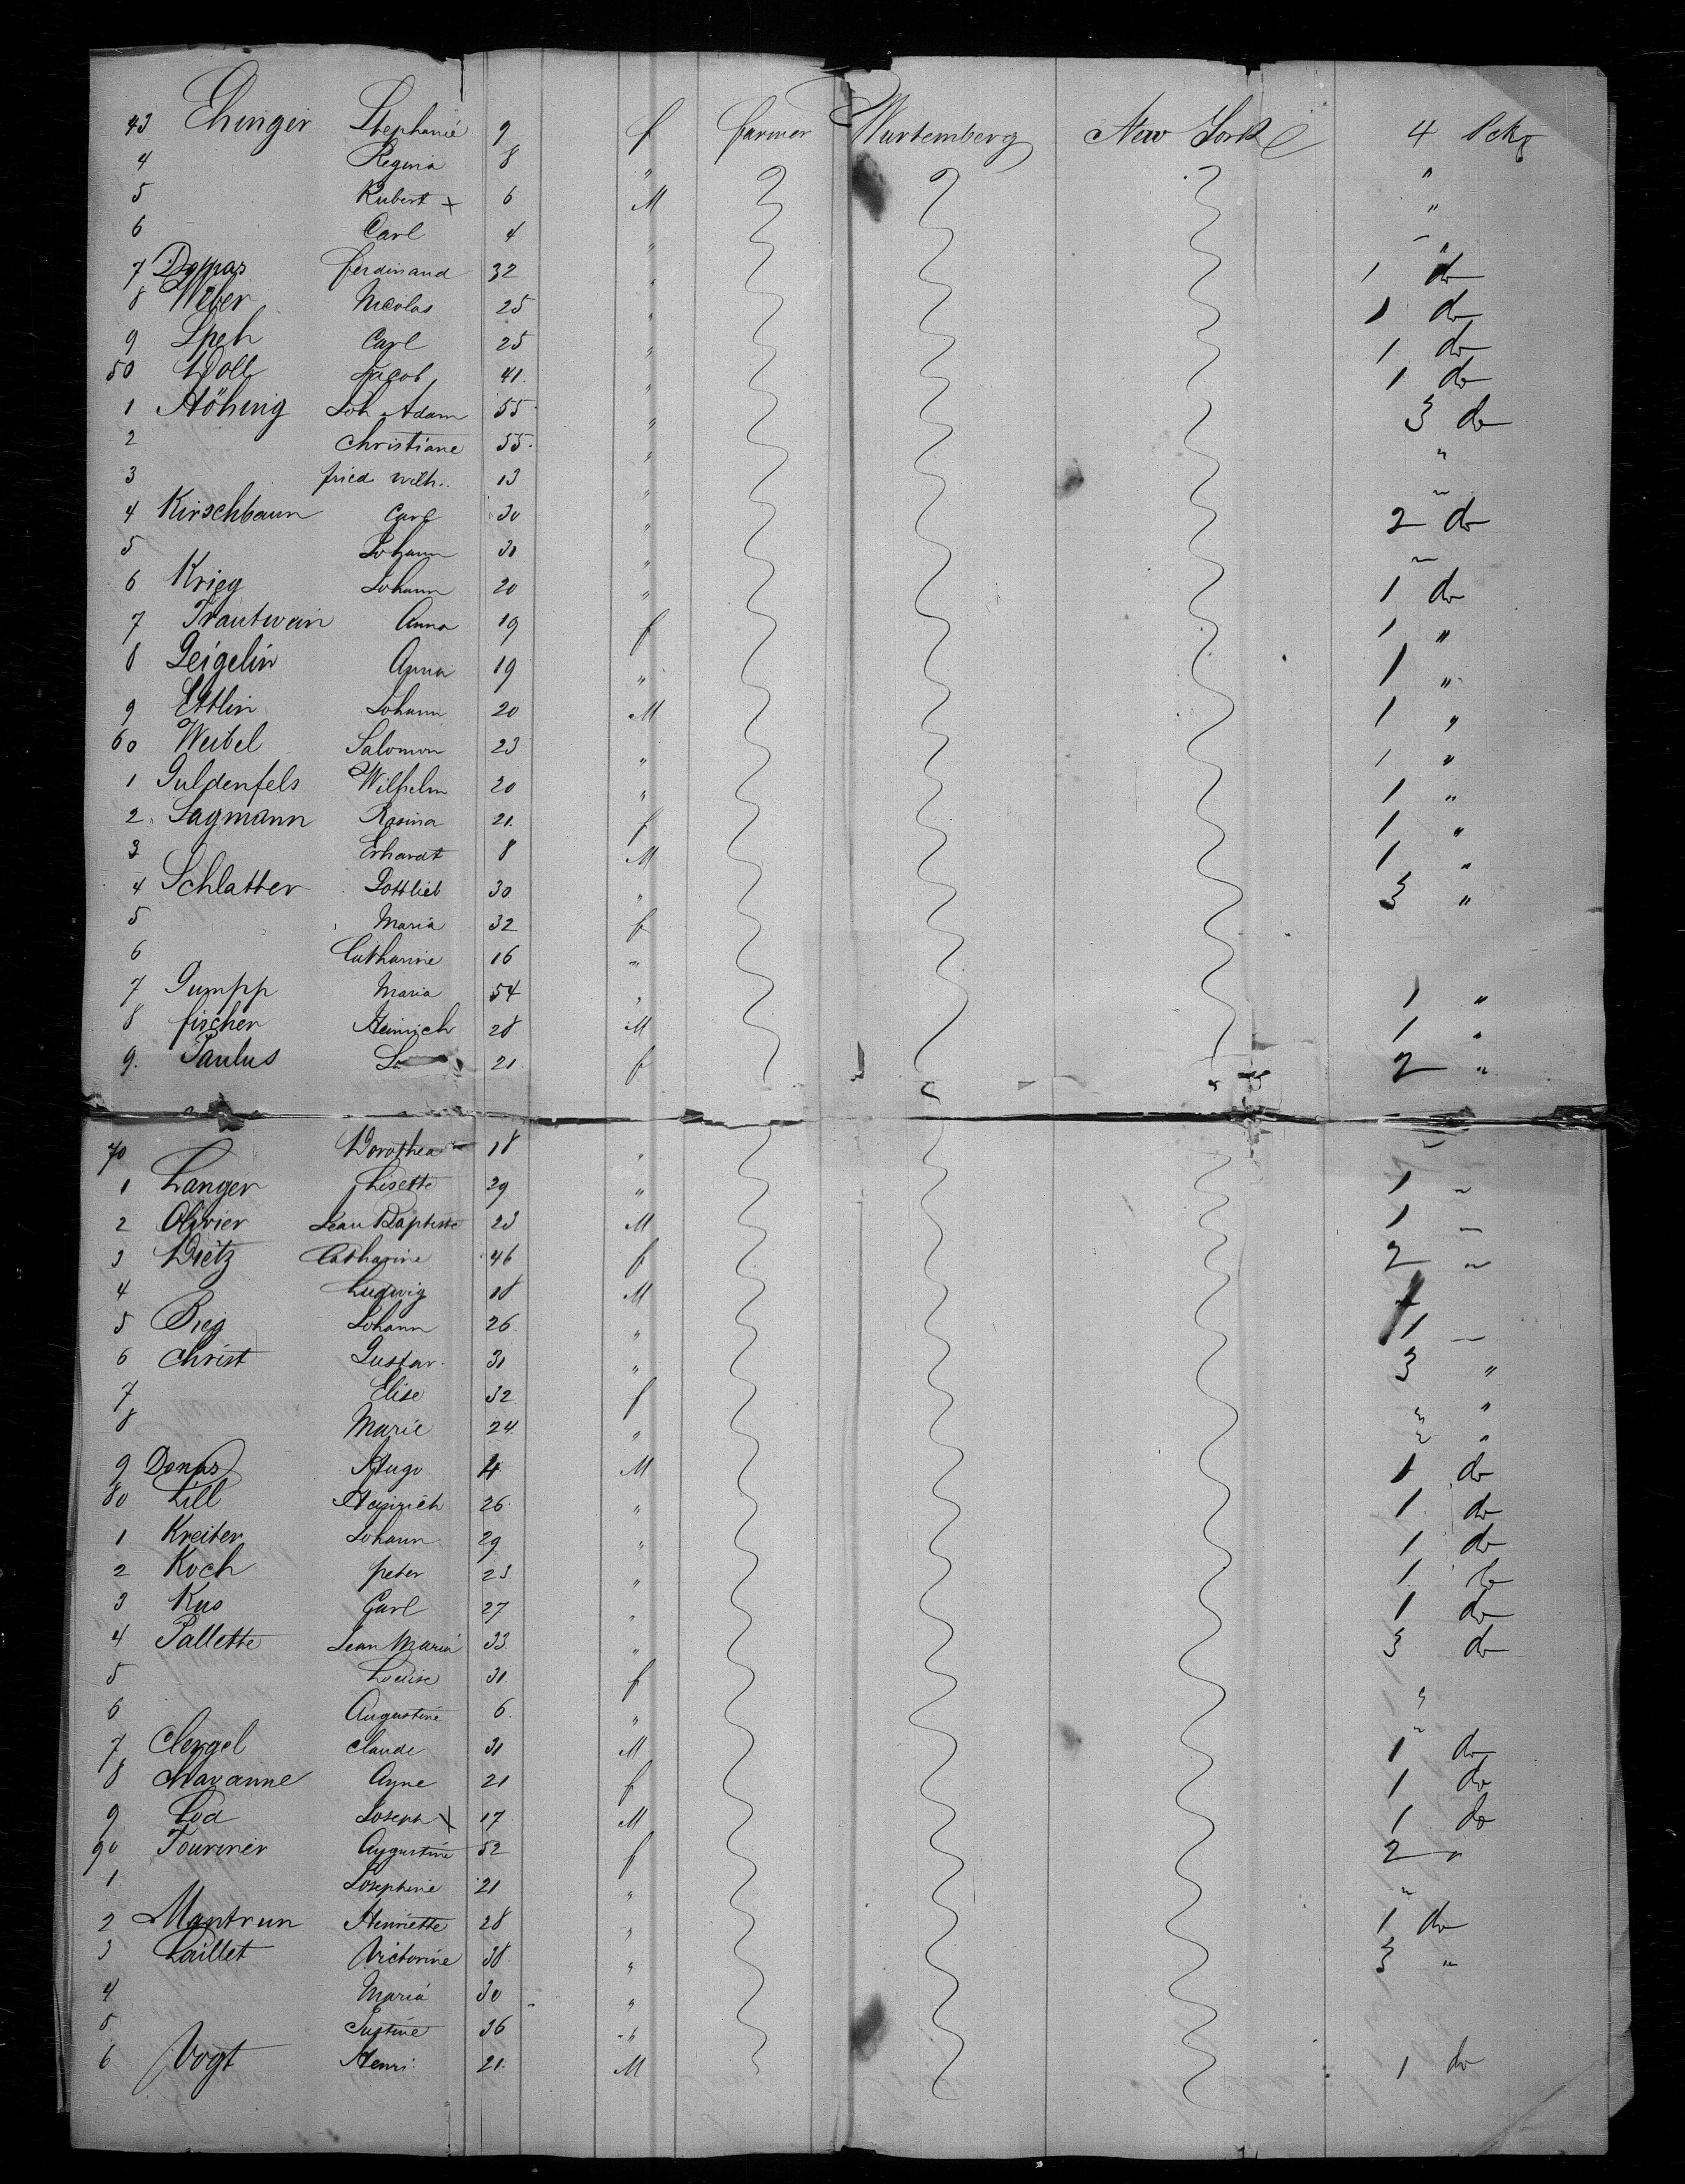 43 Ehinger Stephanie 9 f farmer Wurtemberg New York 4 Pckg
4 Regina 8 " "
5 Rubert + 6 M "
6 Carl 4 " "
7 Ferdinand 32 " 1 do
8 Weber Nicolas 25 " 1 do
9 Speh Carl 25 " 1 do
50 Woll Jacob 41. " 1 do
1 Höhing Joh. Adam 55 " 3 do
2 Christiane 55. " "
3 fried. wilh. 13 " "
4 Kirschbaum Carl 30 " 2 do
5 Johann 31 " "
6 Krieg Johann 20 " 1 do
7 Trautwein Anna 19 f 1 "
8 Geigelin Anna 19 " 1 "
9 Ettlin Johann 20 M 1 "
60 Weibel Salomon 23 " 1 "
1 Guldenfels Wilhelm 20 " 1 "
2 Sagmann Rosina 21. f 1 "
3 Erhardt 8 M 1 "
4 Schlatter Gottlieb 30 " 3 "
5 Maria 32 f
6 Catharine 16 "
7 Gumpp Maria 54 " 1 "
8 fischer Heinrich 28 M 1 "
9. Paulus 21 f 2 "
70 Dorothea 18 " "
1 Langer Lisette 29 " 1 "
2 Olivier Jean Baptiste 23 M 1 "
3 Dietz Catharine 46 f 2 "
4 Ludwig 18 M
5 Bieg Johann 26 " 1 "
6 Christ Gustav 31 " 3 "
7 Elise 32 f " "
8 Marie 24 " " "
9 Hugo 4 M 1 do
80 Lill Heinrich 26 " 1 do
1 Kreiter Johann 29 " 1 do
2 Koch peter 23 " 1 do
3 Kus Carl 27 " 1 do
4 Pallette Jean Maria 33. " 3 do
5 Louise 31 f
6 Augustine 6. " "
7 Clergel Claude 31 M 1 do
8 Chavanne Anne 21 f 1 do
9 Joseph X 17 M 1 do
90 Tournier Augustine 52 f 2 "
1 Josephine 21 " "
2 Mantrun Henriette 28 " 1 do
3 Laillet Victorine 38 " 3 "
4 Maria 30 "
5 Justine 36 "
6 Vogt Henri 21. M 1 do